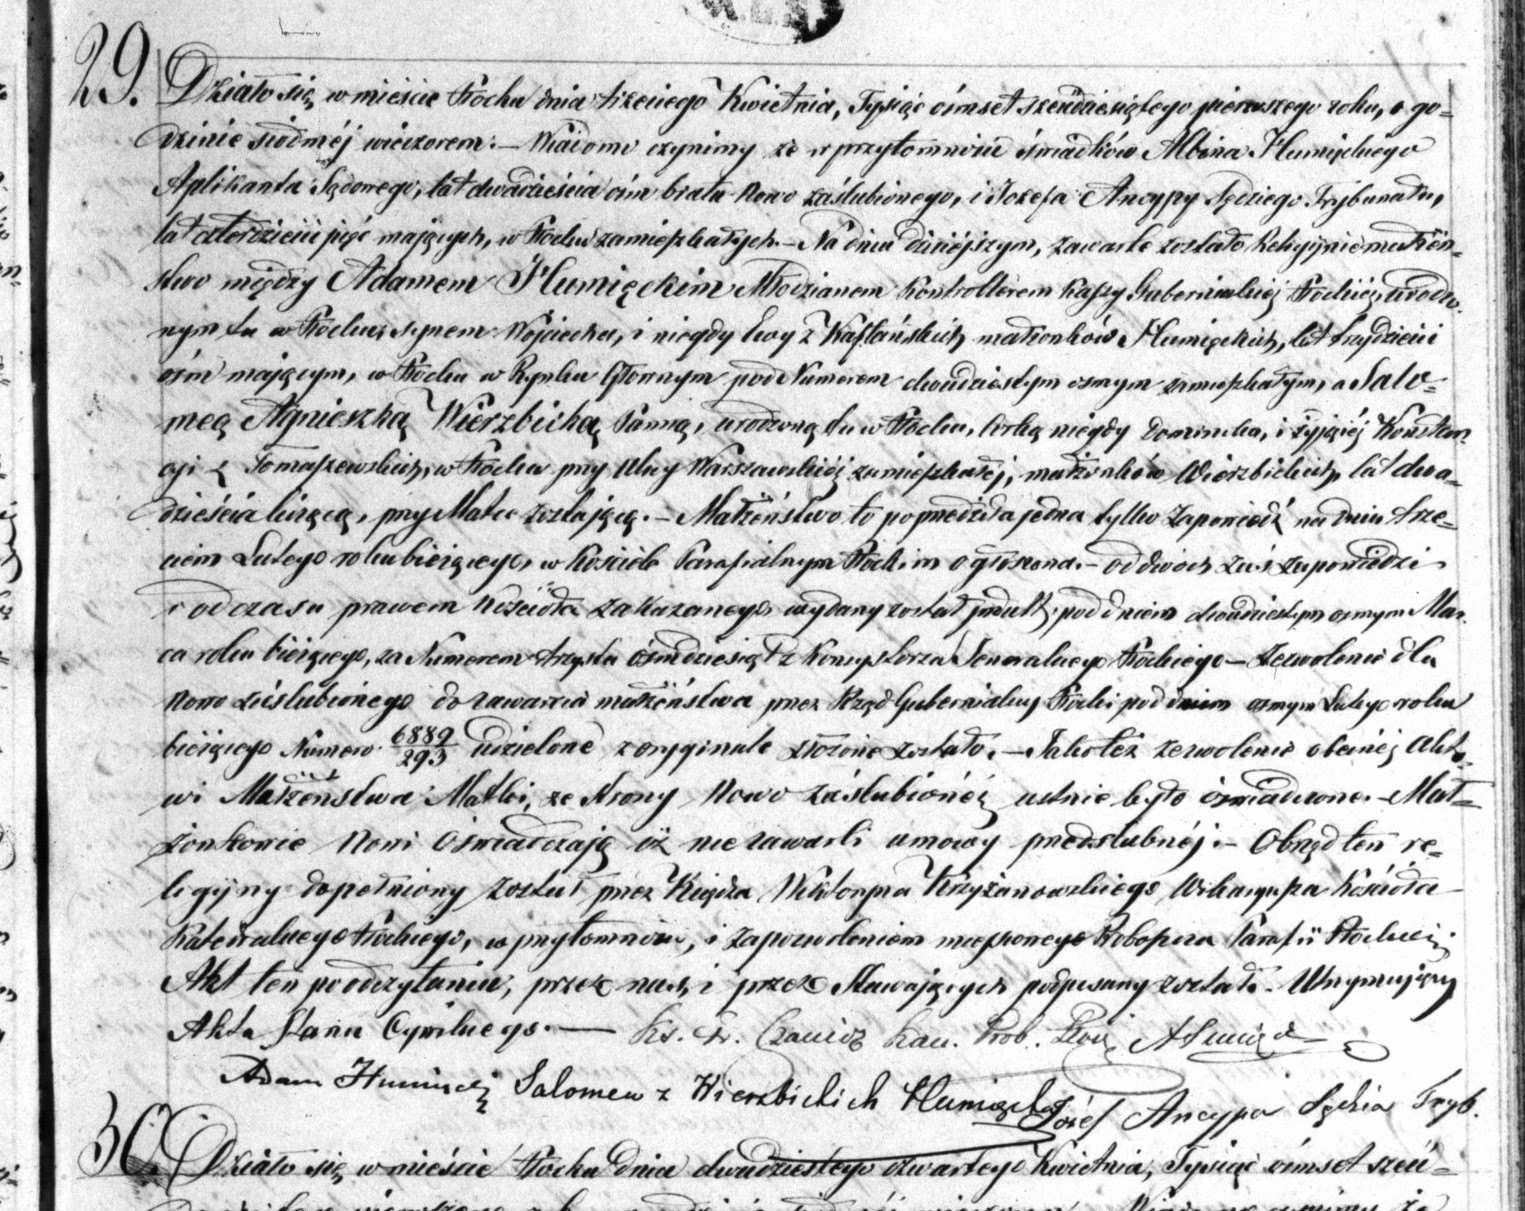 29. Działo się w mieście Płocku dnia trzeciego Kwietnia, Tysiąc ośmset sześćdziesiątego pierwszego roku, o go-
dzinie siódmej wieczorem. – Wiadomo czynimy że w przytomności świadków Albina Humięckiego
Aplikanta Sądowego, lat dwadzieścia ośm brata Nowo zaślubionego, i Józefa Ancypy Sędziego Trybunału,
lat czterdzieści pięć mających, w Płocku zamieszkałych. – Na dniu dzisiejszym, zawarte zostało Religijne małżeń-
stwo między Adamem Humięckim Młodzianem Kontrollerem Kassy Gubernialnej Płockiej, urodzo-
nym tu w Płocku, synem Wojciecha, i niegdy Ewy z małżonków Humięckich, lat trzydzieści
ośm mającym, w Płocku w Rynku Głównym pod Numerem dwudziestym osmym zamieszkałym, a Salo-
meą Agnieszką Wierzbicką Panną, urodzoną tu w Płocku, córką niegdy Dominika, i żyjącej Konstan-
cji z Tomaszewskich, w Płocku przy Ulicy Warszawskiej zamieszkałej, małżonków Wierzbickich, lat dwa-
dzieścia liczącą, przy Matce zostającą. – Małżeństwo to poprzedziła jedna tylko Zapowiedź na dniu trze-
ciem Lutego roku bieżącego, w Kościele Parafialnym Płockim ogłoszona. – od dwóch zaś zapowiedzi
i od czasu prawem Kościoła zakazanego, wydany został indult pod dniem dwudziestym osmym Mar-
ca roku bieżącego, za Numerem trzysta ośmdziesiąt z Konsystorza Jeneralnego Płockiego – Zezwolenie dla
Nowo zaślubionego do zawarcia małżeństwa przez Rząd Gubernialny Płocki pod dniem osmym Lutego roku
bieżącego Numero 6889/293 udzielone w oryginale złożone zostało. – Jakoteż zezwolenie obecnej Akto-
wi Małżeństwa Matki, ze strony Nowo zaślubionéj ustnie było oświadczone. – Mał-
żonkowie Nowi Oświadczają iż nie zawarli umowy przedślubnéj. – Obrzęd ten re-
ligijny dopełniony został przez Księdza Wiktoryna Krzyżanowskiego Wikaryusza Kościoła
Katedralnego Płockiego, w przytomności, i zapozwoleniem miejscowego Proboszcza Parafii Płockiej.
Akt ten po odczytaniu, przez nas, i przez Stawających podpisany został. Utrzymujący
Akta Stanu Cywilnego. — Ks. Kan. Prob. Płocki
Adam Humięcki Salomea z Wierzbickich Humięcka Józef Ancypa Sędzia Tryb.
30. Działo się w mieście Płocku dnia dwudziestego czwartego Kwietnia, Tysiąc ośmset sześć-